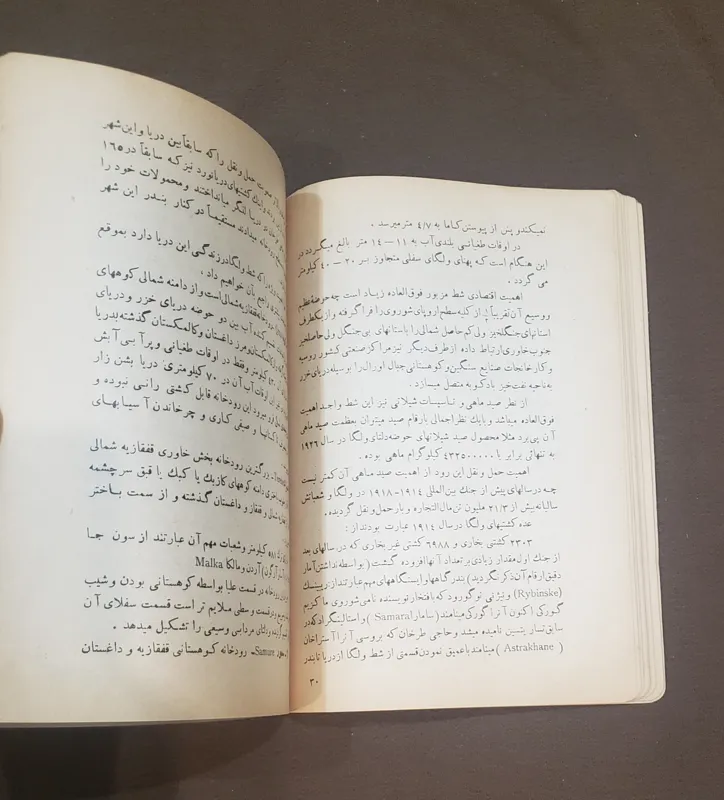 نمیکندو پس از پیوستن کاما به ۴/۷ متر میرسد .
در اوقات طغیانی بلندی آب به ۱۱ — ۱۴ متر بالغ میگردد در
این هنگام است که پهنای ولگای سفلی متجاوز بر ۲۰ — ۴۰ کیلومتر
می گردد .
اهمیت اقتصادی شط مزبور فوق العاده زیاد است چه حوضۀ عظیم
و وسیع آن تقریباً از کلیه سطح اروپای شوروی را فرا گرفته و از یکطرف
استانهای جنگلخیز ولی کم حاصل شمالی را باستانهای بی جنگل ولی حاصلخیز
جنوب خاوری ارتباط داده از طرف دیگر نیز مراکز صنعتی کشور روسیه
و کارخانجات صنایع سنگین و کوهستانی جبال اورال را بوسیله دریای خزر
به ناحیه نفت خیز باد کوبه متصل میسازد .
از نظر صید ماهی و تأسیسات شیلاتی نیز این شط واجد اهمیت
فوق العاده میباشد و با یک نظر اجمالی بارقام صید میتوان بعظمت صید ماهی
آن پی برد مثلا محصول صید شیلاتهای حوضه دلتای ولگا در سال ۱۹۳۶
به تنهائی برابر با ۴۳۲۵۰۰۰۰۰ کیلوگرام ماهی بوده .
اهمیت حمل و نقل این رود از اهمیت صید ماهی آن کمتر نیست
چه در سالهای پیش از جنك بین المللی ۱۹۱۴-۱۹۱۸ در ولگا و شعباتش
سالیانه بیش از ۲۱/۳ ملیون تن مال التجاره و بار حمل و نقل گردیده .
عده کشتیهای ولگا در سال ۱۹۱۴ عبارت بودند از :
۲۳۰۳ کشتی بخاری و ۶۹۸۸ کشتی غیر بخاری که در سالهای بعد
از جنك اول مقدار زیادی بر تعداد آنها افزوده گشت (بواسطه نداشتن آمار
دقیق ارقام آن ذکر نگردید) بندر گاهها و ایستگاههای مهم عبارتند از ریبینسك
(Rybinske) و نیژنی نو گورود که بافتخار نویسنده نامی شوروی ما کزیم
گورکی اکنون آنرا گورکی مینامند (سامارا Samara ) و استالینگراد که در
سابق تسار یتسین نامیده میشد و حاجی طرخان که بروسی آنرا آستراخان
( Astrakhane ) مینامند با عمیق نمودن قسمتی از شط ولگا از دریا تا بندر
۳۰
صورت حمل و نقل را که سابقاً بین دریا و این شهر
و اینك کشتیهای دریا نورد نیز که سابقاً در ۱۶۵
دریا لنگر میانداختند و محمولات خود را
میدادند مستقیماً در کنار بندر این شهر
که شط ولگا در زندگی این دریا دارد بموقع
خواهیم داد .
قفقازیه شمالی است و از دامنه شمالی کوههای
کننده آب بین دو حوضه دریای خزر و دریای
و مرز داغستان و کالمکستان گذشته بدریا
کیلومتر و فقط در اوقات طغیانی و پر آبی آبش
اوقات آب آن در ۷۰ کیلومتری دریا بشن زار
میرود این رودخانه قابل کشتی رانی نبوده و
و صفی کاری و چرخاندن آ سیابهای
بزرگترین رودخانه بخش خاوری قفقازیه شمالی
دامنه کوههای کازبك یا کبك با قبق سر چشمه
شمال و قفقاز و داغستان گذشته و از سمت باختر
کیلومتر و شعبات مهم آن عبارتند از سون جا
(آرگون) آردن و مالکا Malka
رودخانه در قسمت علیا بواسطه کوهستانی بودن و شیب
و در قسمت وسطی ملایم تر است قسمت سفلای آن
دلتای مردابی وسیعی را تشکیل میدهد .
Samure رودخانه کوهستانی قفقازیه و داغستان